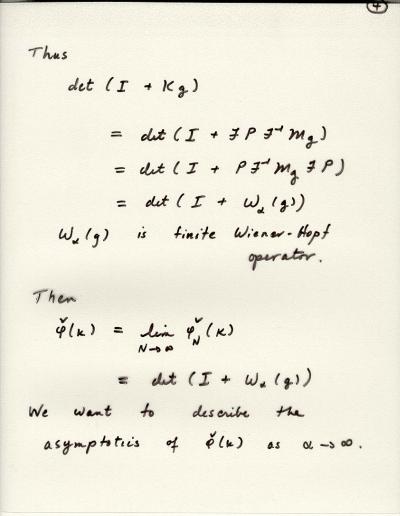 4
Thus
det (I + Kg)
= det (I + F P F⁻¹ Mg)
= det (I + P F⁻¹ Mg F P)
= det (I + Wα(g))
Wα(g) is finite Wiener-Hopf
operator.
Then
φ̌(k) = lim φ̌_N(k)
N→∞
= det (I + Wα(g))
We want to describe the
asymptotics of φ̌(k) as α→∞.